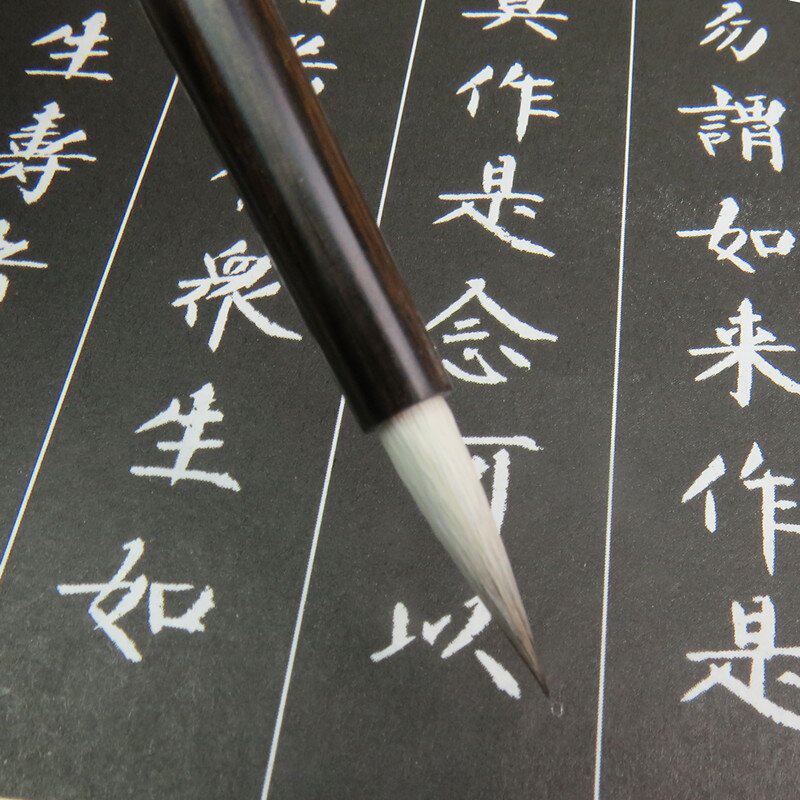 勿謂如来作是
莫作是念何以
衆生如
生壽者